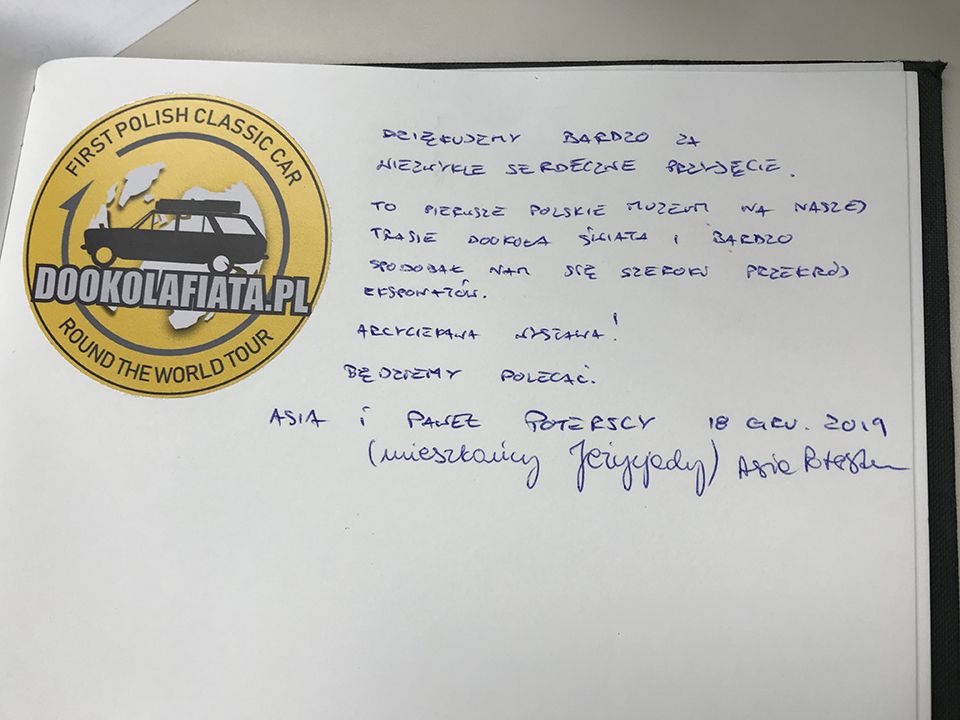 FIRST POLISH CLASSIC CAR
DOOKOLAFIATA.PL
ROUND THE WORLD TOUR
DZIĘKUJEMY BARDZO ZA
NIEZWYKLE SERDECZNE PRZYJĘCIE.
TO PIERWSZE POLSKIE MUZEUM NA NASZEJ
TRASIE DOOKOŁA ŚWIATA I BARDZO
SPODOBAŁ NAM SIĘ SZEROKI PRZEKRÓJ
EKSPONATÓW.
ARCYCIEKAWA WYSTAWA!
BĘDZIEMY POLECAĆ.
ASIA i PAWEŁ POTERSCY 18 GRU. 2019
(mieszkańcy Jeżycjady) Asia